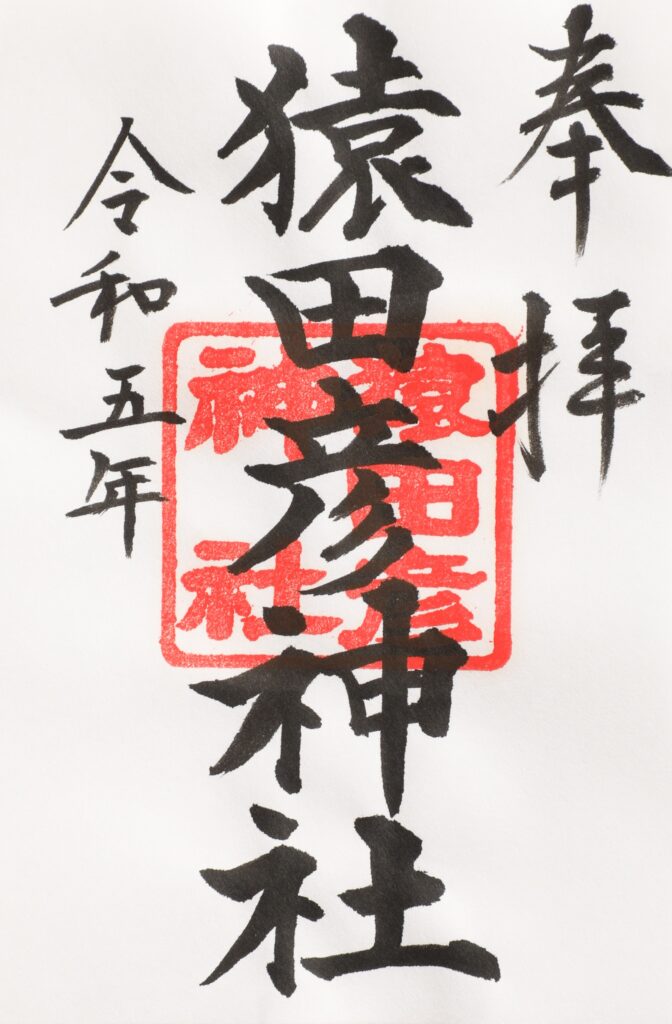 奉拝
猿田彦神社
猿田彦
神社
令和五年